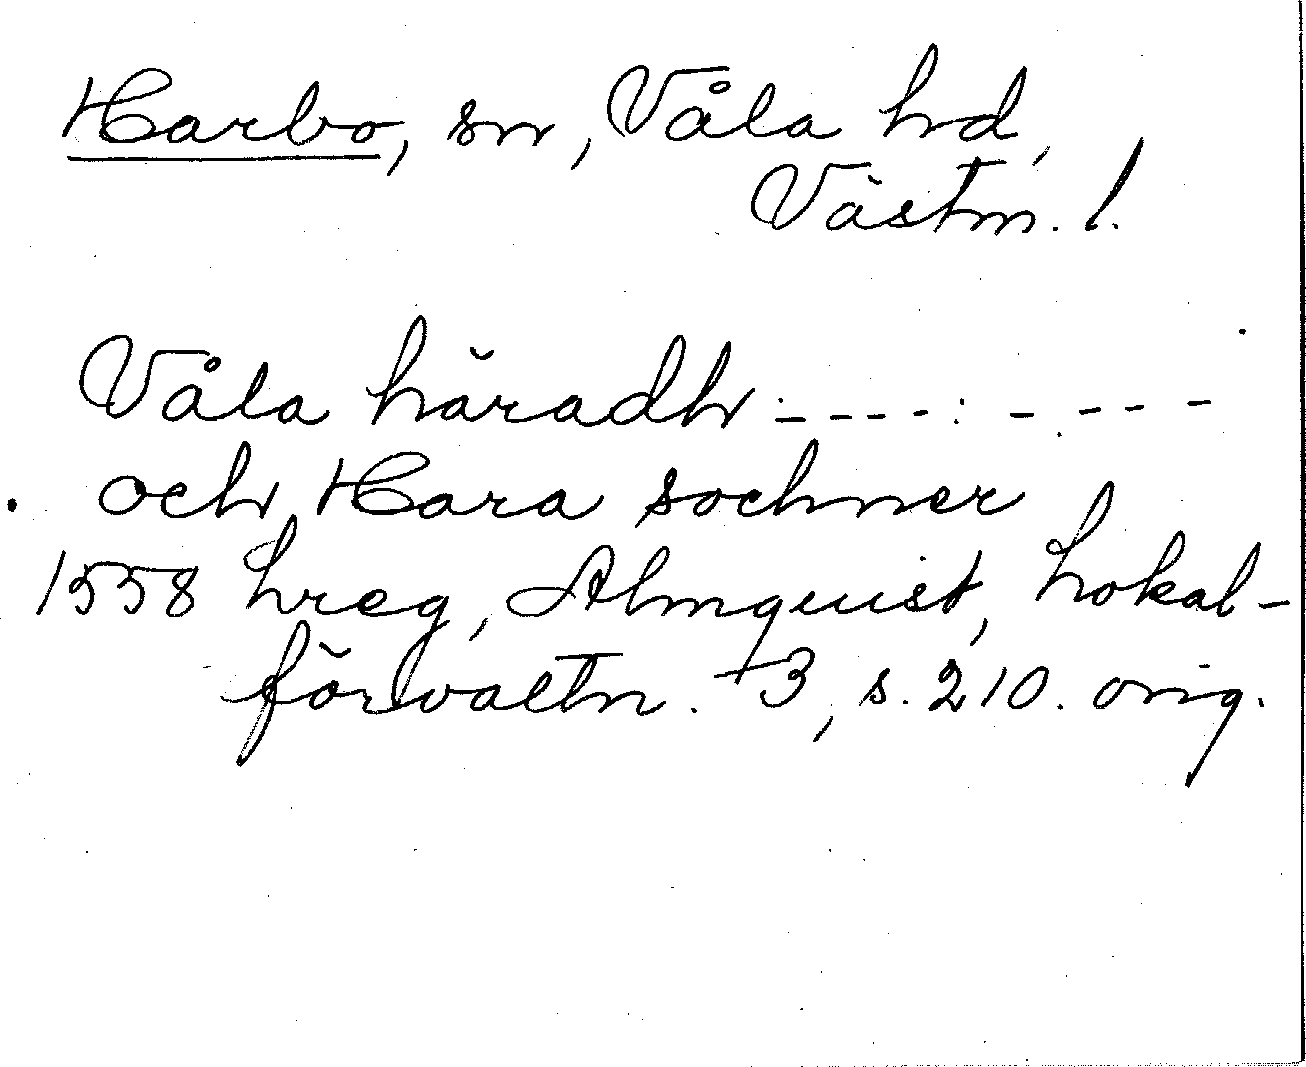 Harbo, sn, Våla hd,
Västm. l.
Våla häradh - - - - : - - - - -
och Hara sochner
1558 hreg, Almquist, Lokal-
förvaltn. 3, s. 210. orig.